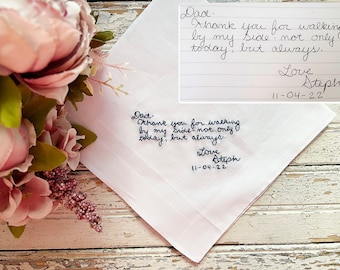 Dad.
Thank you for walking
by my side not only
today, but always.
Love
Steph
11-04-22
Dad.
Thank you for walking
by my side not only
today, but always.
Love
Steph
11-04-22